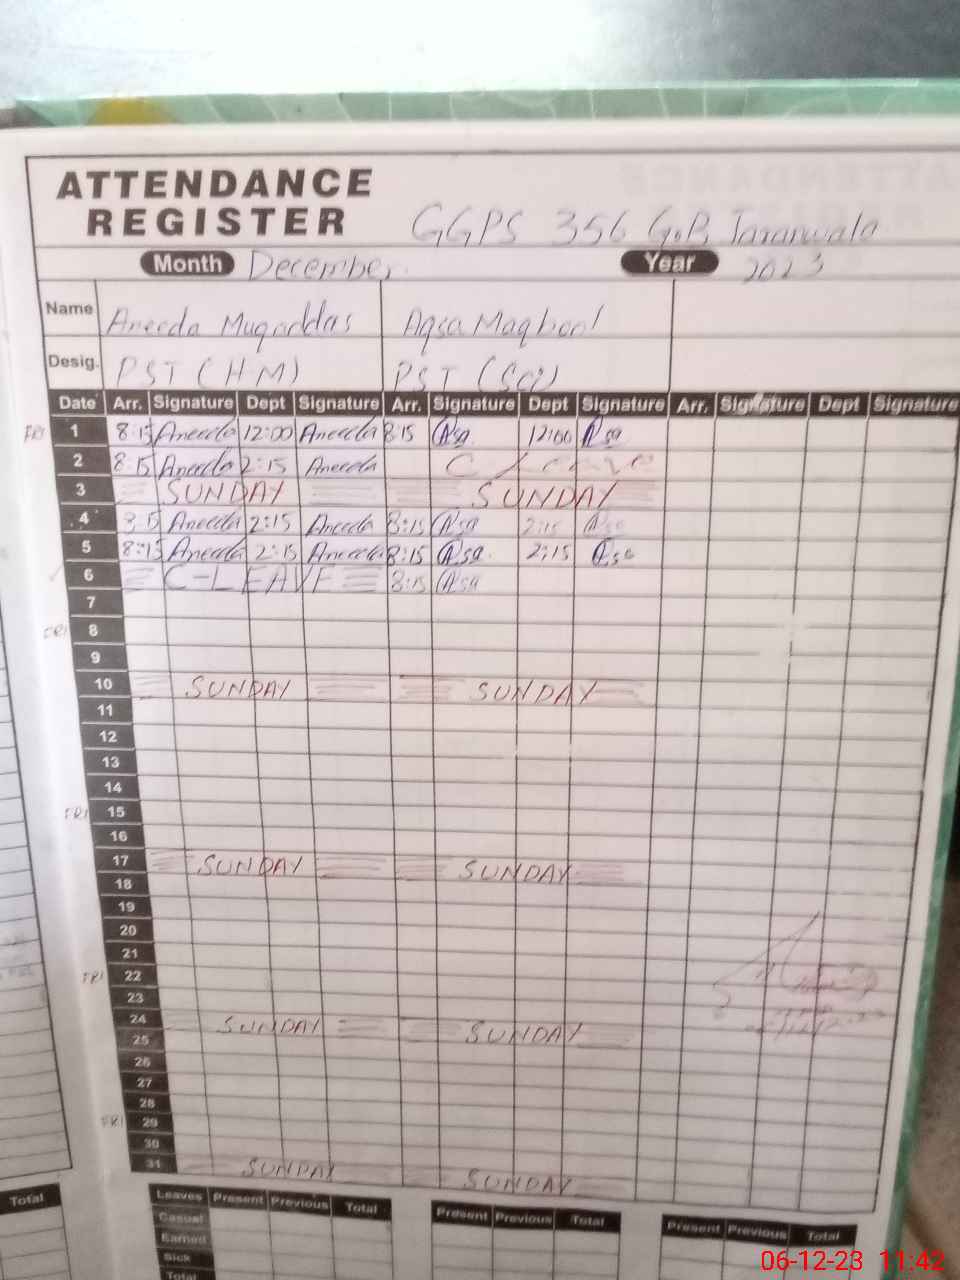 ATTENDANCE
REGISTER
GGPS 356 G.B, Tararwala
Month December. Year 2023
Name Aneeda Muqaddas Aqsa Maqbool
Desig. PST (HM) PST (Sci)
Date Arr. Signature Dept Signature Arr. Signature Dept Signature Arr. Signature Dept Signature
FRI 1 8:15 Aneeda 12:00 Aneeda 8:15 12:00
2 8:15 Aneeda 2:15 Aneeda C Leave
3 SUNDAY SUNDAY
4 Aneeda 2:15 Aneeda 8:15 2:15
5 8:15 Aneeda 2:15 Aneeda 8:15 2:15
6 C-LEAVE 8:15
7
FRI 8
9
10 SUNDAY SUNDAY
11
12
13
14
FRI 15
16
17 SUNDAY SUNDAY
18
19
20
21
FRI 22
23
24 SUNDAY SUNDAY
25
26
27
28
FRI 29
30
31 SUNDAY SUNDAY
Total Leaves Present Previous Total Present Previous Total Present Previous Total
Casual
Earned
Sick
Total
06-12-23 11:42